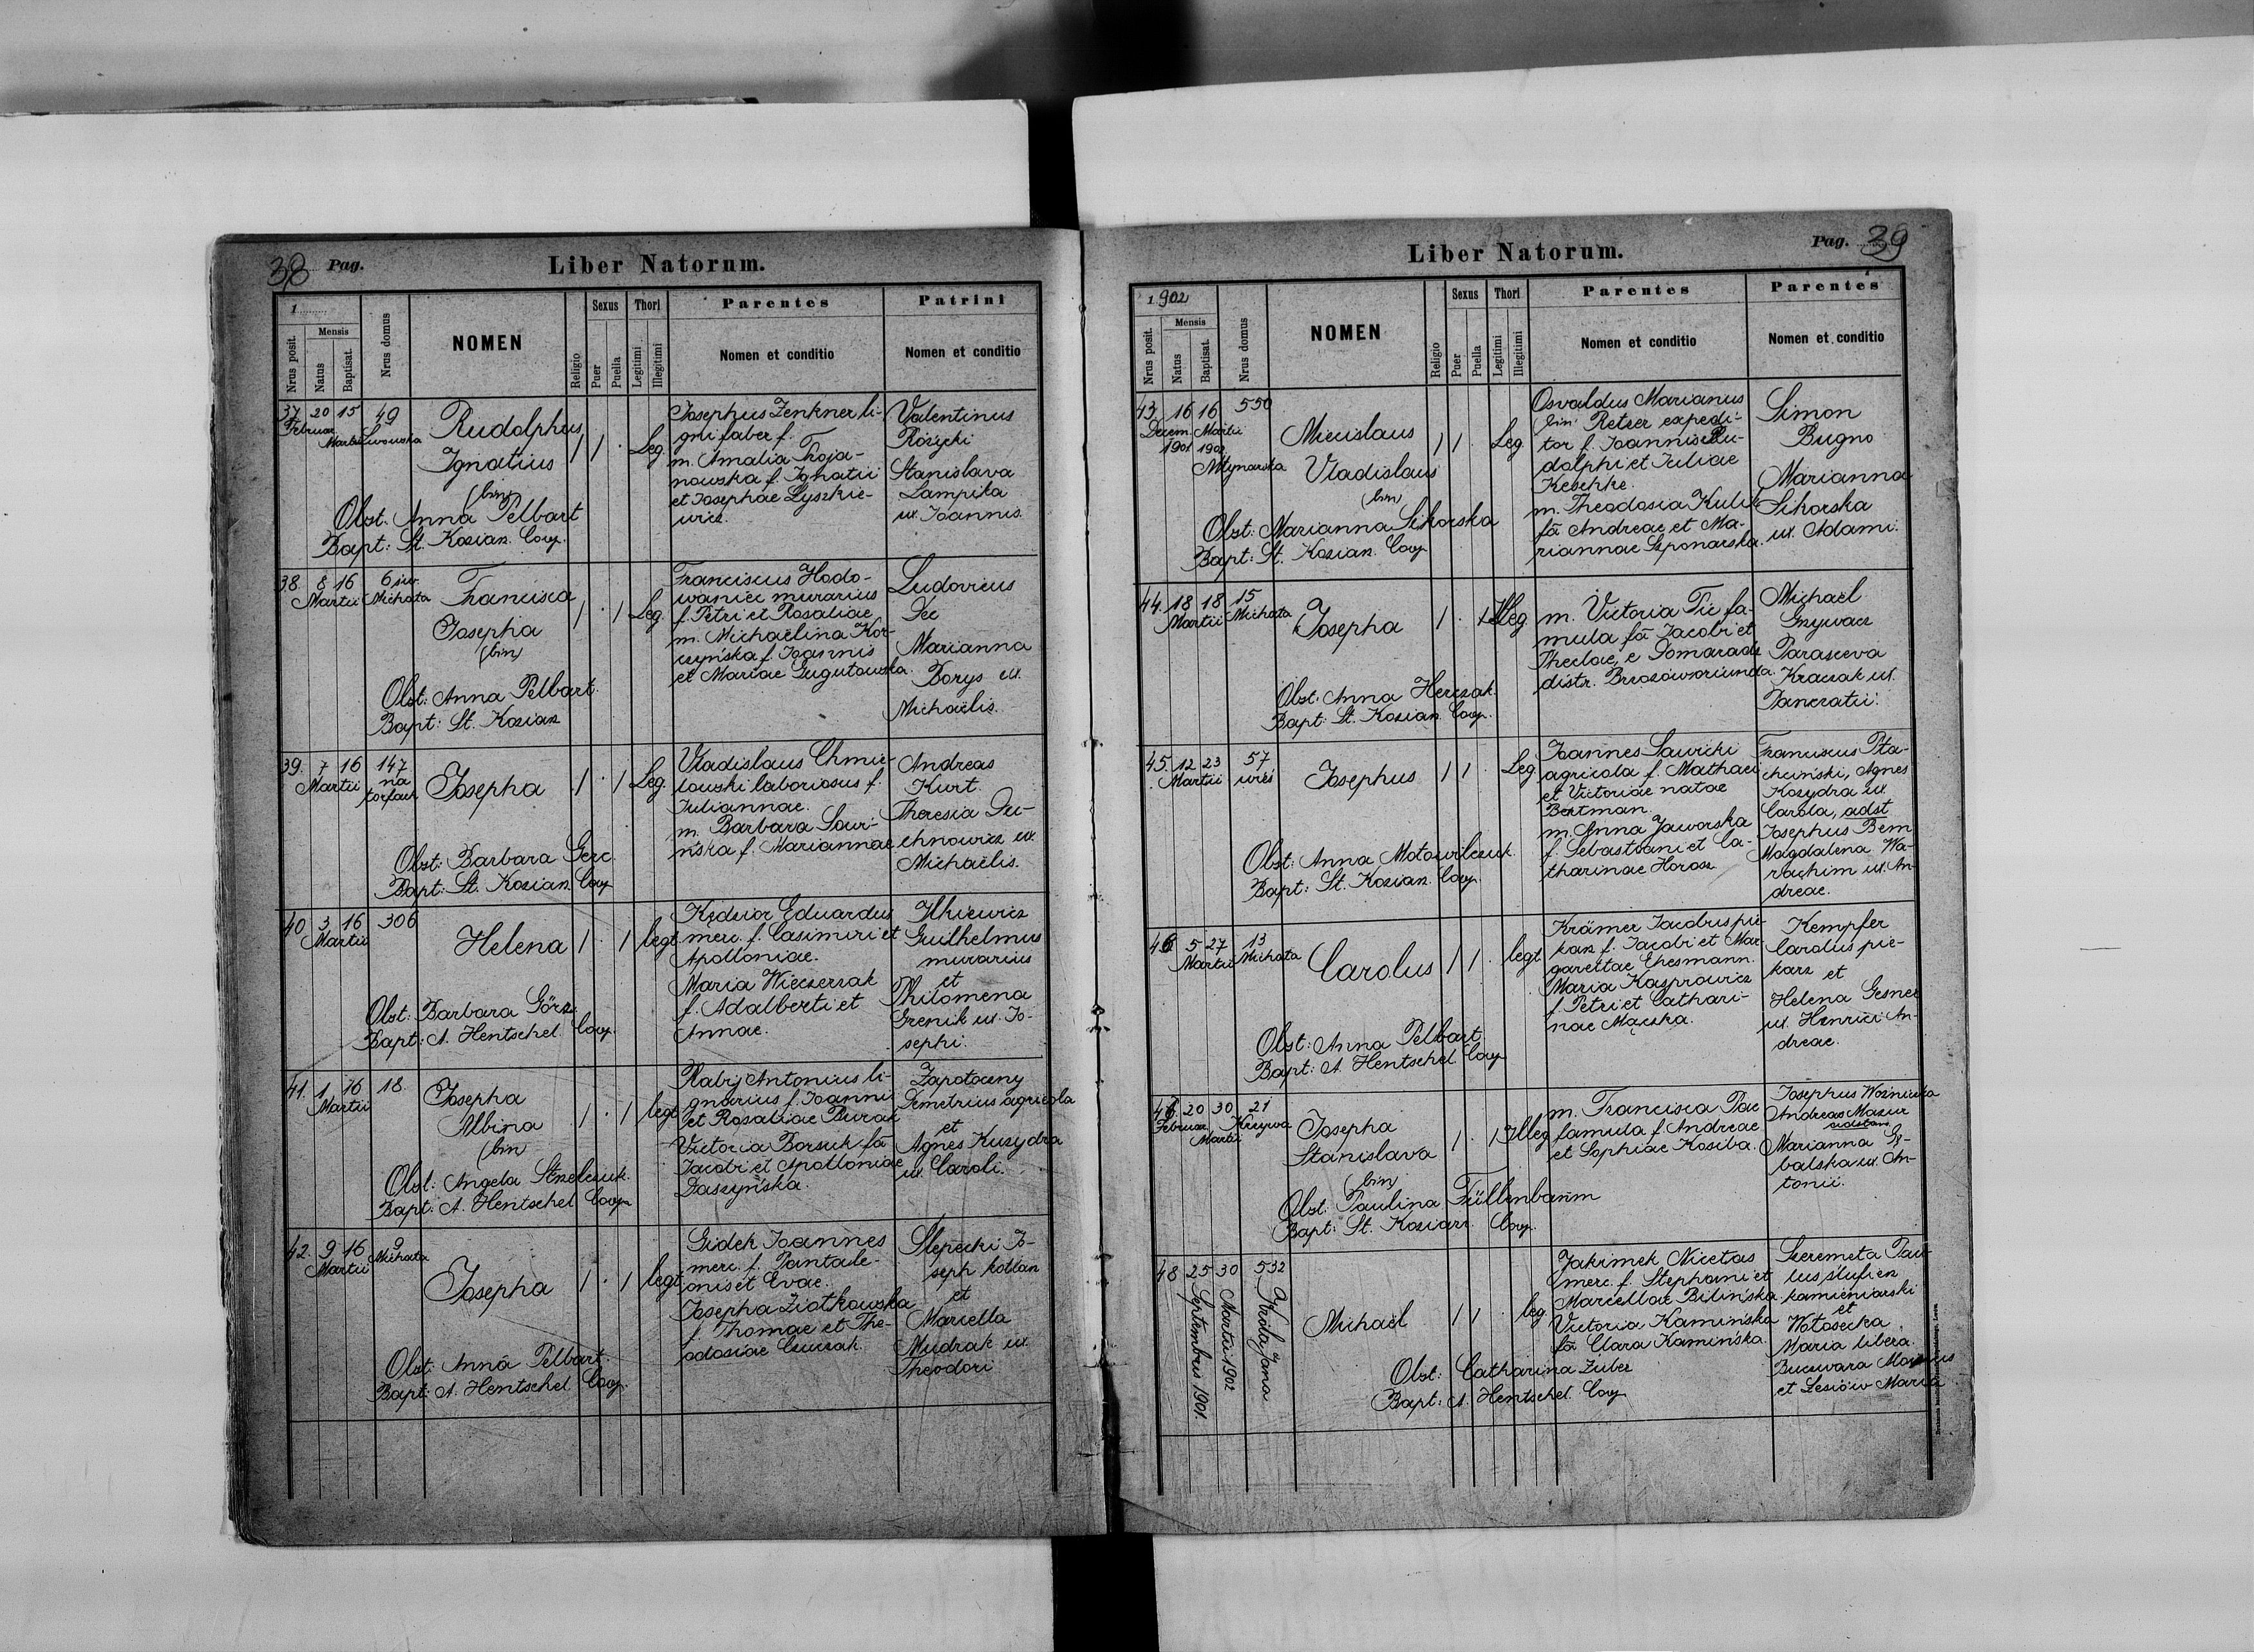 38 Pag.
Liber Natorum.
1
Nrus posit.
Mensis
Natus
Baptisat.
Nrus domus
NOMEN
Religio
Sexus
Puer
Puella
Thori
Legitimi
Illegitimi
Parentes
Nomen et conditio
Patrini
Nomen et conditio
37 20 15 49
Februar Martii Lwowska
Rudolphus
Ignatius
(bin)
1 1 . Leg.
Obst. Anna Pelbart
Bapt: St. Kozian. Coop.
Josephus Zenkner li-
gni faber f.
m. Amalia Troja-
nowska f. Ignatii
et Josephae Lyszkie-
wicz.
Valentinus
Różycki
Stanislava
Lampika
ux. Joannis.
38. 8 16 6 św.
Martii Michała
Francisca
Josepha
(bin)
1 . 1 Leg.
Obst: Anna Pelbart.
Bapt: St. Kozian
Franciscus Hodo-
waniec murarius
f. Petri et Rosaliae
m. Michaëlina Kor-
czyńska f. Joannis
et Mariae Gugutowska.
Ludovicus
Dec
Marianna
Borys ux.
Michaëlis.
39. 7 16 147
Martii na
torfach
Josepha
1 . 1 Leg.
Obst: Barbara Gerc.
Bapt: St. Kozian. Coop
Vladislaus Chmie-
lowski laboriosus f.
Juliannae.
m. Barbara Sawi-
ńska f. Mariannae
Andreas
Kurt.
Theresia Du-
chnowicz ux.
Michaëlis.
40 3 16 306
Martii
Helena
1 . 1 legt
Obst: Barbara Görz.
Bapt: A. Hentschel Coop.
Kędzior Eduardus
merc. f. Casimiri et
Apolloniae.
Maria Wieczerzak
f. Adalberti et
Annae.
Ilkiewicz
Guilhelmus
murarius
et
Philomena
Grenik ux. Jo-
sephi.
41. 1 16 18.
Martii
Josepha
Albina
(bin)
1 . 1 legt
Obst: Angela Strzelczuk.
Bapt: A. Hentschel Coop
Rabij Antonius li-
gnarius f. Joanni
et Rosaliae Burak
Victoria Borsuk fa
Jacobi et Apolloniae
Daszyńska.
Zapotoczny
Demetrius agricola
et
Agnes Kuzydra
ux. Caroli.
42. 9 16 9
Martii Michała
Josepha
1 . 1 legt
Obst: Anna Pelbart.
Bapt: A. Hentschel Coop.
Gidek Joannes
merc. f. Pantale-
onis et Evae.
Josepha Ziołkowska
f. Thomae et The-
odosiae Czuczak.
Slepecki Jo-
seph kotlarz
et
Marcella
Mudrak ux.
Theodori
Pag. 39
Liber Natorum.
1902
Nrus posit.
Mensis
Natus
Baptisat.
Nrus domus
NOMEN
Religio
Sexus
Puer
Puella
Thori
Legitimi
Illegitimi
Parentes
Nomen et conditio
Parentes
Nomen et conditio
43. 16 16 550
Decem. Martii
1901 1902
Młynarska
Miecislaus
Vladislaus
(bin)
1 1 . Leg
Obst: Marianna Sikorska
Bapt: St. Kozian. Coop
Osvaldus Marianus
(bin) Retzer expedi-
tor f. Joannis Ru-
dolphi et Juliae
Keschke.
m. Theodosia Kulik
fa Andreae et Ma-
riannae Szponarska.
Simon
Bugno
Marianna
Sikorska
ux. Adami.
44. 18 18 15
Martii Michała
Josepha
1 . 1 Illeg
Obst: Anna Herczak.
Bapt: St. Kozian. Coop.
m. Victoria Pic fa-
mula fa Jacobi et
Theclae, e Domaradz
distr. Brzozów oriunda.
Michaël
Grzywacz
Parasceva
Kraczak ux.
Pancratii.
45. 12 23 57
Martii wieś
Josephus
1 1 . Leg.
Obst: Anna Motowilczuk.
Bapt: St. Kozian. Coop.
Joannes Sawicki
agricola f. Mathaei
et Victoriae natae
Bertman.
m. Anna Jaworska
f. Sebastiani et Ca-
tharinae Horosz
Franciscus Pta-
chciński, Agnes
Kozydra ux.
Carola, adst
Josephus Bem
Magdalena Wa-
rachim ux. An-
dreae.
46 5 27 13
Martii Michała
Carolus
1 1 . legt
Obst: Anna Pelbart
Bapt: A. Hentschel Coop
Krämer Jacobus pie-
karz f. Jacobi et Mar-
garettae Ehesmann.
Maria Kasprowicz
f. Petri et Cathari-
nae Mączka.
Kempfer
Carolus pie-
karz et
Helena Gesner
ux. Henrici An-
dreae.
46. 20 30 21
Februar. Martii Krzywa
Josepha
Stanislava
(bin)
1 . 1 Illeg
Obst: Paulina Füllenbaum
Bapt: St. Kozian. Coop.
m. Francisca Pac
famula f. Andreae
et Sophiae Kosiba.
Josephus Woźniczka
Andreas Mazur
Marianna Gę-
balska ux. An-
tonii.
48 25 30 532
Septembris 1901.
Martii 1902
Króla Jana
Michaël
1 1 . leg
Obst: Catharina Zuber
Bapt: A. Hentschel Coop
Jakimek Nicetas
merc. f. Stephani et
Marcellae Bilińska
Victoria Kamińska
fa Clara Kamińska.
Szeremeta Pau-
lus szlufierz
kamieniarski
et
Wołosecka
Maria libera.
Buczwara Marcus
et Lesiów Maria